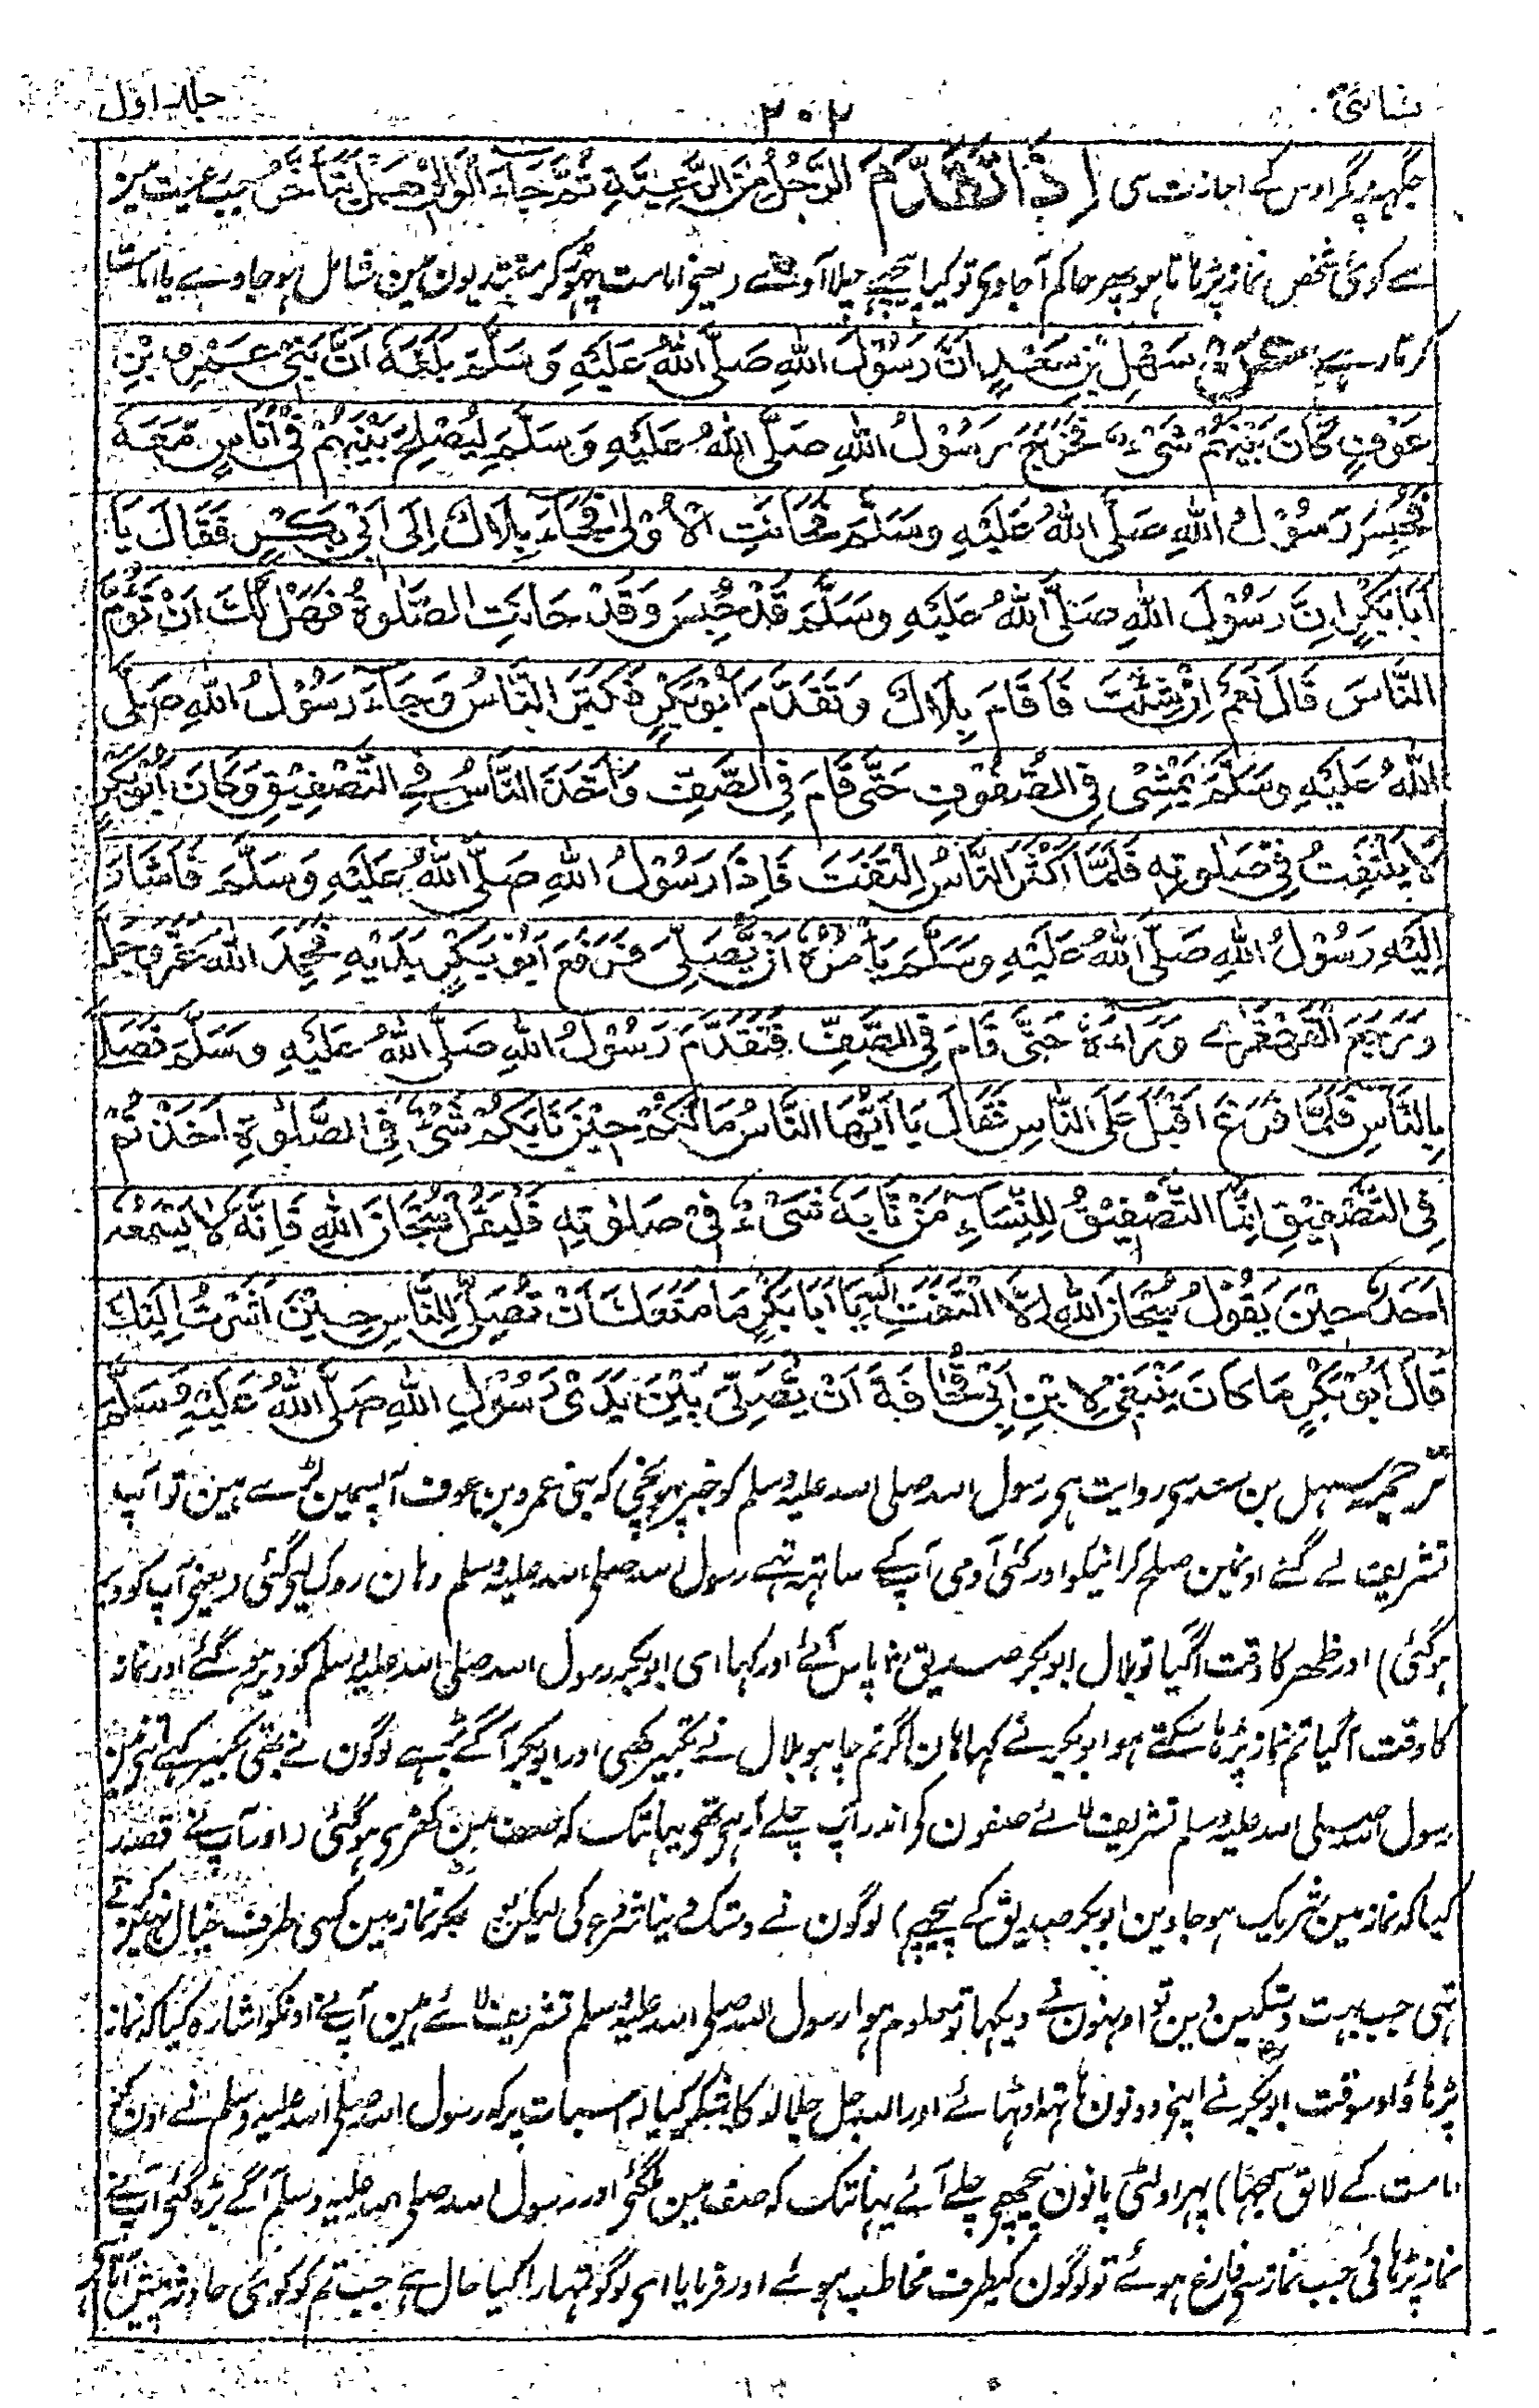 نسائی ۳۰۲ جلد اول
جگہہ پر مگر اوس کے اجازت سی اِذَا تَقَدَّمَ الرَّجُلُ مِنَ الرَّعِيَّةِ ثُمَّ جَآءَ الْوَالِيْ هَلْ يَتَأَخَّرُ جب رعیت میں
سے کوئی شخص نماز پڑہاتا ہو پہر حاکم آجاوی تو کیا پیچہے چلا آوے (یعنی امامت چہوڑ کر مقتدیون مین شامل ہو جاوے یا امامت
کرتا رہے عَنْ سَهْلِ بْنِ سَعْدٍ اَنَّ رَسُوْلَ اللهِ صَلَّى اللهُ عَلَيْهِ وَسَلَّمَ بَلَغَهٗ اَنَّ بَنِيْ عَمْرِو بْنِ
عَوْفٍ كَانَ بَيْنَهُمْ شَيْءٌ فَخَرَجَ رَسُوْلُ اللهِ صَلَّى اللهُ عَلَيْهِ وَسَلَّمَ لِيُصْلِحَ بَيْنَهُمْ فِيْ اُنَاسٍ مَّعَهٗ
فَحُبِسَ رَسُوْلُ اللهِ صَلَّى اللهُ عَلَيْهِ وَسَلَّمَ فَحَانَتِ الْاُوْلٰى فَجَآءَ بِلَالٌ اِلٰى اَبِيْ بَكْرٍ فَقَالَ يَا
اَبَا بَكْرٍ اِنَّ رَسُوْلَ اللهِ صَلَّى اللهُ عَلَيْهِ وَسَلَّمَ قَدْ حُبِسَ وَقَدْ حَانَتِ الصَّلٰوةُ فَهَلْ لَّكَ اَنْ تَؤُمَّ
النَّاسَ قَالَ نَعَمْ اِنْ شِئْتَ فَاَقَامَ بِلَالٌ وَتَقَدَّمَ اَبُوْ بَكْرٍ فَكَبَّرَ بِالنَّاسِ وَجَآءَ رَسُوْلُ اللهِ صَلَّى
اللهُ عَلَيْهِ وَسَلَّمَ يَمْشِيْ فِي الصُّفُوْفِ حَتّٰى قَامَ فِي الصَّفِّ وَاَخَذَ النَّاسُ فِي التَّصْفِيْقِ وَكَانَ اَبُوْ بَكْرٍ
لَا يَلْتَفِتُ فِيْ صَلٰوتِهٖ فَلَمَّا اَكْثَرَ النَّاسُ الْتَفَتَ فَاِذَا رَسُوْلُ اللهِ صَلَّى اللهُ عَلَيْهِ وَسَلَّمَ فَاَشَارَ
اِلَيْهِ رَسُوْلُ اللهِ صَلَّى اللهُ عَلَيْهِ وَسَلَّمَ يَاْمُرُهٗ اَنْ يُّصَلِّيَ فَرَفَعَ اَبُوْ بَكْرٍ يَدَيْهِ فَحَمِدَ اللهَ عَزَّ وَجَلَّ
وَرَجَعَ الْقَهْقَرٰى وَرَآءَهٗ حَتّٰى قَامَ فِي الصَّفِّ فَتَقَدَّمَ رَسُوْلُ اللهِ صَلَّى اللهُ عَلَيْهِ وَسَلَّمَ فَصَلّٰى
بِالنَّاسِ فَلَمَّا فَرَغَ اَقْبَلَ عَلَى النَّاسِ فَقَالَ يَا اَيُّهَا النَّاسُ مَا لَكُمْ حِيْنَ نَابَكُمْ شَيْءٌ فِي الصَّلٰوةِ اَخَذْتُمْ
فِي التَّصْفِيْقِ اِنَّمَا التَّصْفِيْقُ لِلنِّسَآءِ مَنْ نَّابَهٗ شَيْءٌ فِيْ صَلٰوتِهٖ فَلْيَقُلْ سُبْحَانَ اللهِ فَاِنَّهٗ لَا يَسْمَعُهٗ
اَحَدٌ حِيْنَ يَقُوْلُ سُبْحَانَ اللهِ اِلَّا الْتَفَتَ اِلَيْهِ يَا اَبَا بَكْرٍ مَا مَنَعَكَ اَنْ تُصَلِّيَ لِلنَّاسِ حِيْنَ اَشَرْتُ اِلَيْكَ
قَالَ اَبُوْ بَكْرٍ مَا كَانَ يَنْبَغِيْ لِابْنِ اَبِيْ قُحَافَةَ اَنْ يُّصَلِّيَ بَيْنَ يَدَيْ رَسُوْلِ اللهِ صَلَّى اللهُ عَلَيْهِ وَسَلَّمَ
ترجمہ سہل بن سعد سی روایت ہی رسول اللہ صلی اللہ علیہ وسلم کو خبر پہونچی کہ بنی عمرو بن عوف آپسمین لڑے ہین تو آپ
تشریف لے گئے اونمین صلح کرانیکو اور کئی آدمی آپ کے ساتہہ تہے رسول اللہ صلی اللہ علیہ وسلم وہان روک لیے گئی (یعنی آپ کو دیر
ہوگئی) اور ظہر کا وقت آگیا تو بلال ابوبکر صدیق رض پاس آئے اور کہا ای ابوبکر رسول اللہ صلی اللہ علیہ وسلم کو دیر ہوگئے اور نماز
کا وقت آگیا تم نماز پڑہا سکتے ہو ابوبکر نے کہا ہان اگر تم چاہو بلال نے تکبیر کہی اور ابوبکر آگے بڑہے لوگون نے بہی تکبیر کہی اتنی مین
رسول اللہ صلی اللہ علیہ وسلم تشریف لائے صفون کی اندر آپ چلے آرہی تہی یہانتک کہ صف مین کہڑی ہوگئی (اور آپ نے قصد
کیا کہ نماز مین شریک ہو جاوین ابوبکر صدیق کے پیچہے) لوگون نے دستک دینا شروع کی لیکن ابوبکر نماز مین کسی طرف خیال نہین کرتے
تہی جب بہت دستکین دین تو اونہون نے دیکہا تو معلوم ہوا رسول اللہ صلی اللہ علیہ وسلم تشریف لائے ہین آپ نے اونکو اشارہ کیا کہ نماز
پڑہاؤ اوسوقت ابوبکر رض نے اپنی دونون ہاتہہ اوٹہائے اور اللہ جل جلالہ کا شکر کیا (اسبات پر کہ رسول اللہ صلی اللہ علیہ وسلم نے اون کو
امامت کے لائق سمجہا) پہر اولٹی پانون پیچہے چلے آئے یہانتک کہ صف مین ملگئی اور رسول اللہ صلی اللہ علیہ وسلم آگے بڑہ گئی آپ نے
نماز پڑہائی جب نماز سی فارغ ہوئے تو لوگون کیطرف مخاطب ہوئے اور فرمایا ای لوگو تمہارا کیا حال ہے جب تم کو کوئی حادثہ پیش آتا